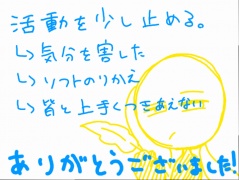 活動を少し止める。
↳気分を害した
↳ソフトのりかえ
↳皆と上手くつきあえない
ありがとうございました!